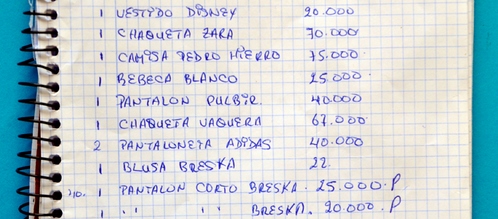 1 VESTIDO DISNEY 20.000
1 CHAQUETA ZARA 70.000
1 CAMISA PEDRO HIERRO 75.000
1 BEBECA BLANCO 25.000
1 PANTALON PULBIR. 40.000
1 CHAQUETA VAQUERA 67.000
2 PANTALONETA ADIDAS 40.000
1 BLUSA BRESKA 22.
1 PANTALON CORTO BRESKA. 25.000.P
1 ,, ,, BRESKA. 20.000.P